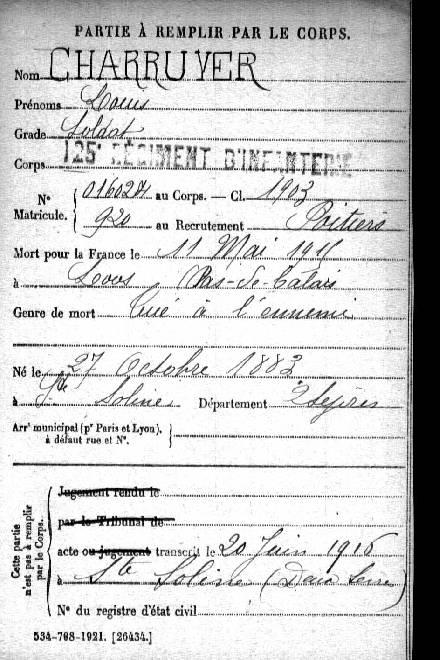 PARTIE À REMPLIR PAR LE CORPS.
Nom CHARRUYER
Prénoms Louis
Grade Soldat
Corps 125e RÉGIMENT D'INFANTERIE
N° Matricule. 016027 au Corps. — Cl. 1903
920 au Recrutement Poitiers
Mort pour la France le 11 Mai 1915
à Loos Pas-de-Calais
Genre de mort Tué à l'ennemi
Né le 27 Octobre 1883
à Ste Soline Département 2 Sèvres
Arrt municipal (pr Paris et Lyon),
à défaut rue et N°.
Cette partie
n'est pas à remplir
par le Corps.
Jugement rendu le
par le Tribunal de
acte ou jugement transcrit le 20 Juin 1916
à Ste Soline (Deux Sèvres)
N° du registre d'état civil
534-708-1921. [26434.]